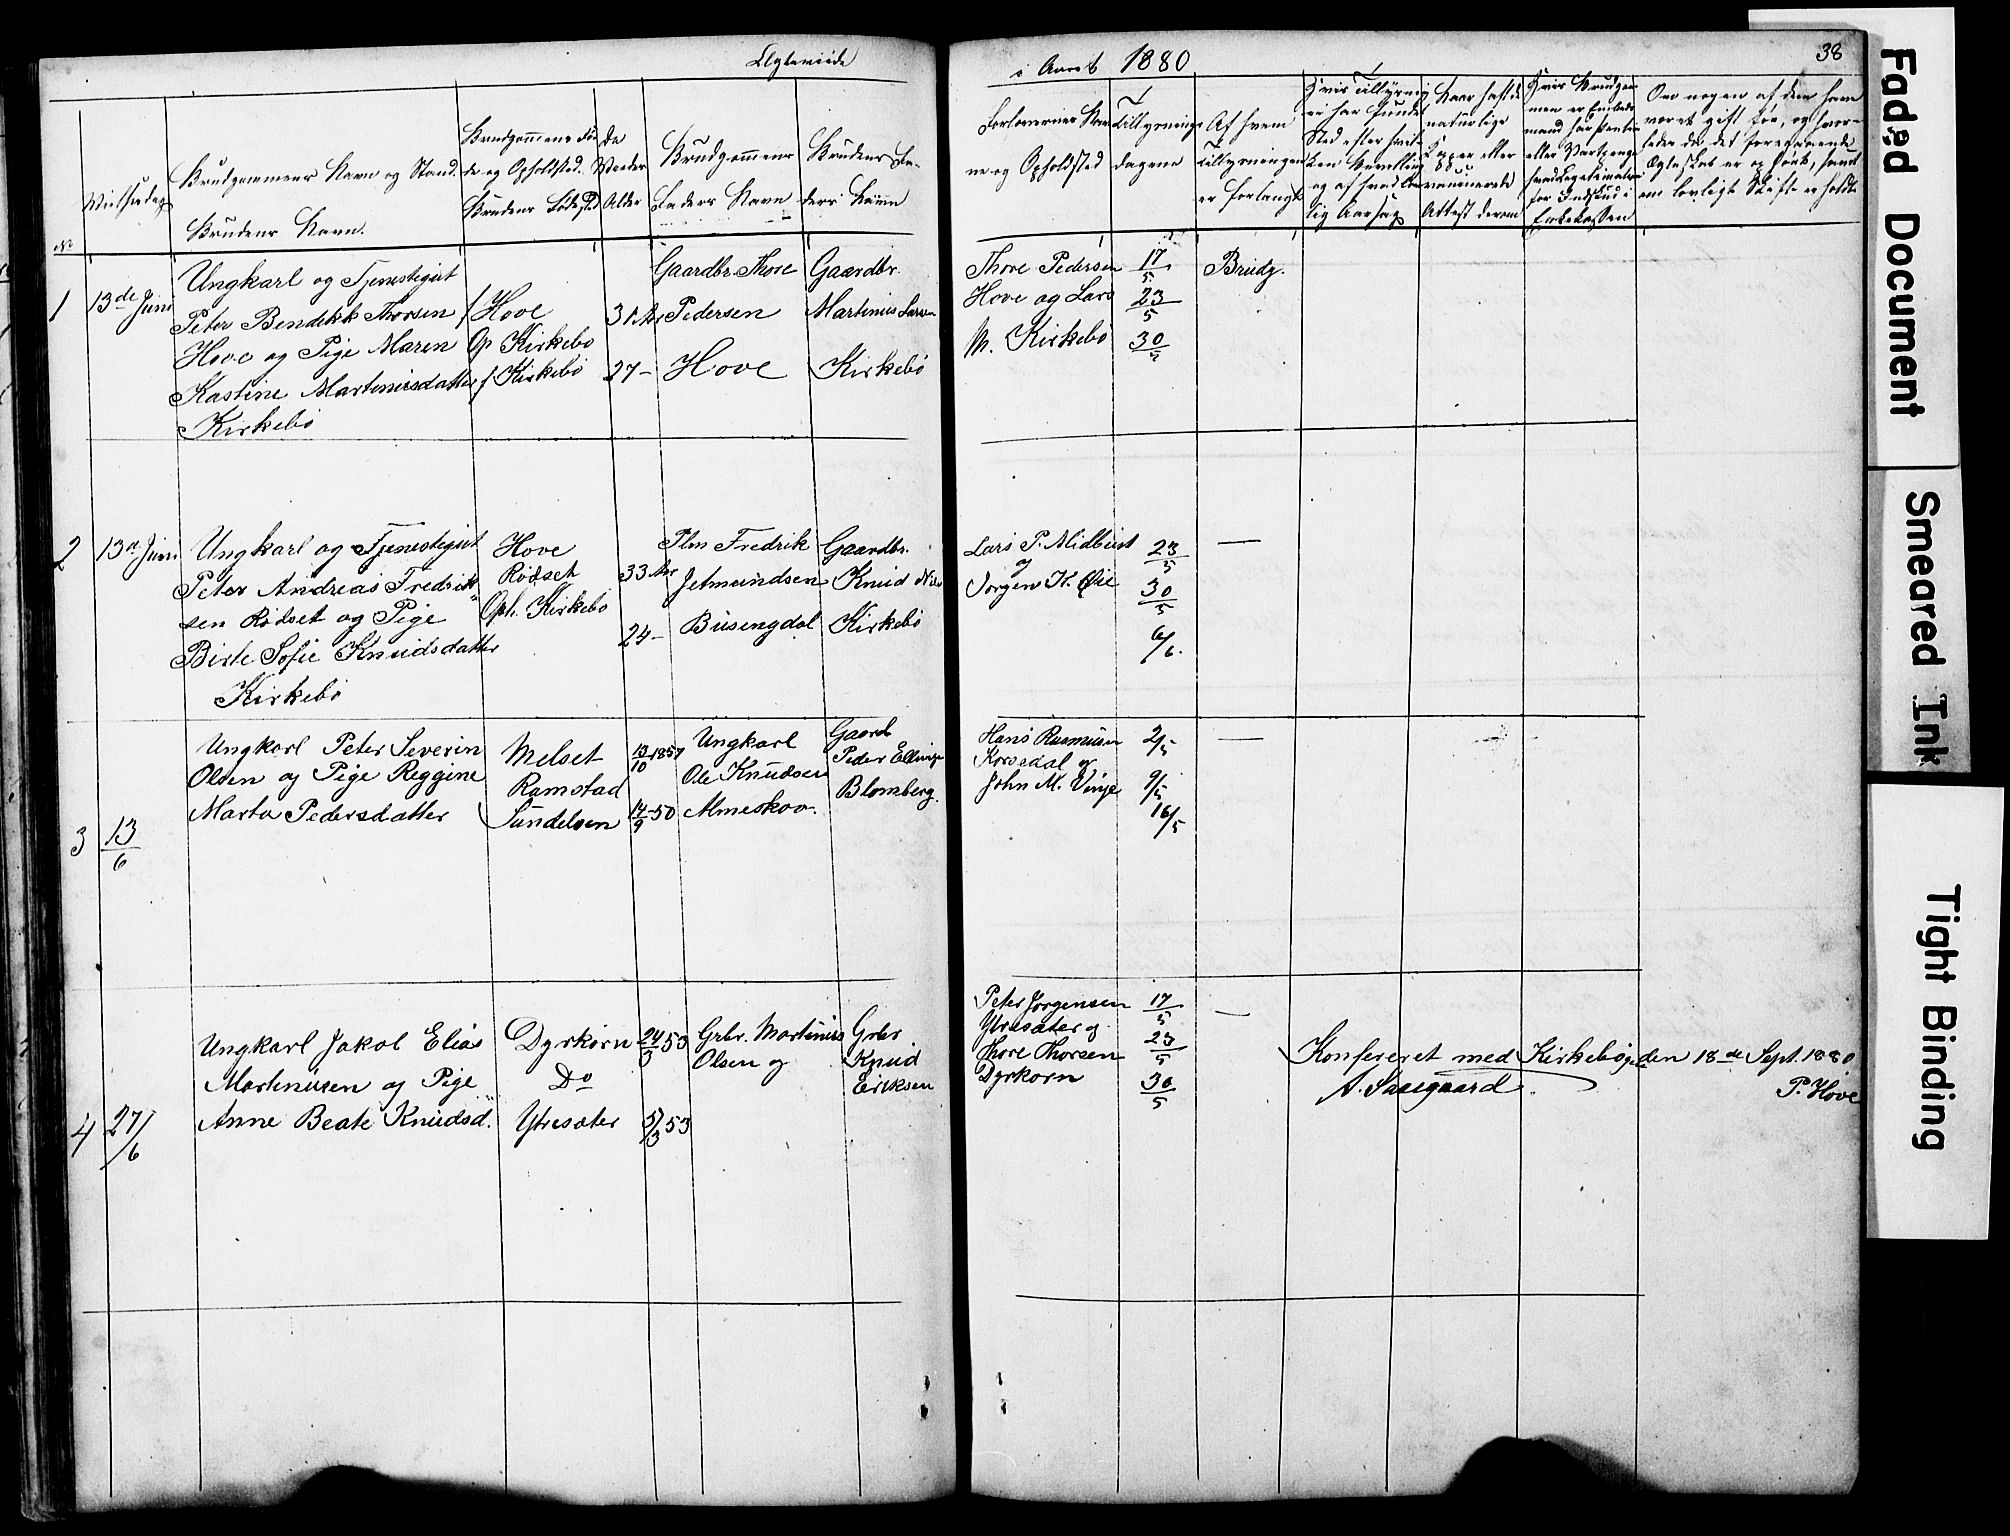 Ægteviede
i Aaret 1880
38
No
Vielsedag
Brudgommens Navn og Stand.
Brudens Navn.
Brudgommens Fø-
de og Opholdsted.
Brudens Fødested
De
Viedes
Alder
Brudgommens
Faders Navn
Brudens Fa-
ders Navn
Forlovernes Nav-
ne og Opholdsted
Tillysnings
dagene
Af hvem
Tillysningen
er forlangt
Hvis Tillysning
ei har funden
Sted efter hvil-
ken Bevilling
og af hvad lov-
lig Aarsag
Naar havt de
naturlige
Kopper eller
vaccinerede
Attest derom
Hvis Brudgom-
men er Embeds
mand
Enkekassen
Om nogen af dem have
været gift før, og hvor-
ledes da det foregaaende
Ægteskab er opløst, samt
om lovligt Skifte er holdt
1
13de Juni
Ungkarl og Tjenestegut
Peter Bendikk Thorsen
Hove og Pige Maren
Kastine Martinusdatter
Kirkebö
f Hove
Op Kirkebo
f. Kirkebö
31 Ar
27 –
Gaardbr. Thore
Pedersen
Hove
Gaardbr.
Martinus Larsen
Kirkebö
Thore Pedersen
Hove og Lars
M. Kirkebö
17/5
23/5
30/5
Brudg.
2
13de Juni
Ungkarl og Tjenestegut
Peter Andreas Fredrik
sen Rödset og Pige
Birte Sofie Knudsdatter
Kirkebö
Hove
Rödset
Oph. Kirkebö
33 Ar
24 –
Plm Fredrik
Jetmundsen
Busengdal
Gaardbr.
Knud Nils
Kirkebö
Lars P. Midbust
og
Jörgen K. Øie
23/5
30/5
6/6.
—
3
13/6
Ungkarl Peter Severin
Olsen og Pige Reggine
Marta Pedersdatter
Melset
Ramstad
Sundelsen
13/10 1857
14/9 – 50
Ungkarl
Ole Knudsen
Almeskov.
Gaardb
Peder Ellings
Blomberg.
Hans Rasmusen
Korsedal og
John M. Vinje
2/5
9/5
16/5
—
4
27/6
Ungkarl Jakob Elias
Martinusen og Pige
Anne Beate Knudsd.
Dyrkorn
Do
Ytresæter
24/3 53
5/3 53
Grbr. Martinus
Olsen og
Grbr
Knud
Eriksen
Peter Jörgensen
Ytresæter og
Thore Thorsen
Dyrkorn
17/5
23/5
30/5
—
Konfereret med Kirkebogen den 18de Sept. 1880
A. Saaegaard.
P. Hove
Faded Document
Smeared Ink
Tight Binding